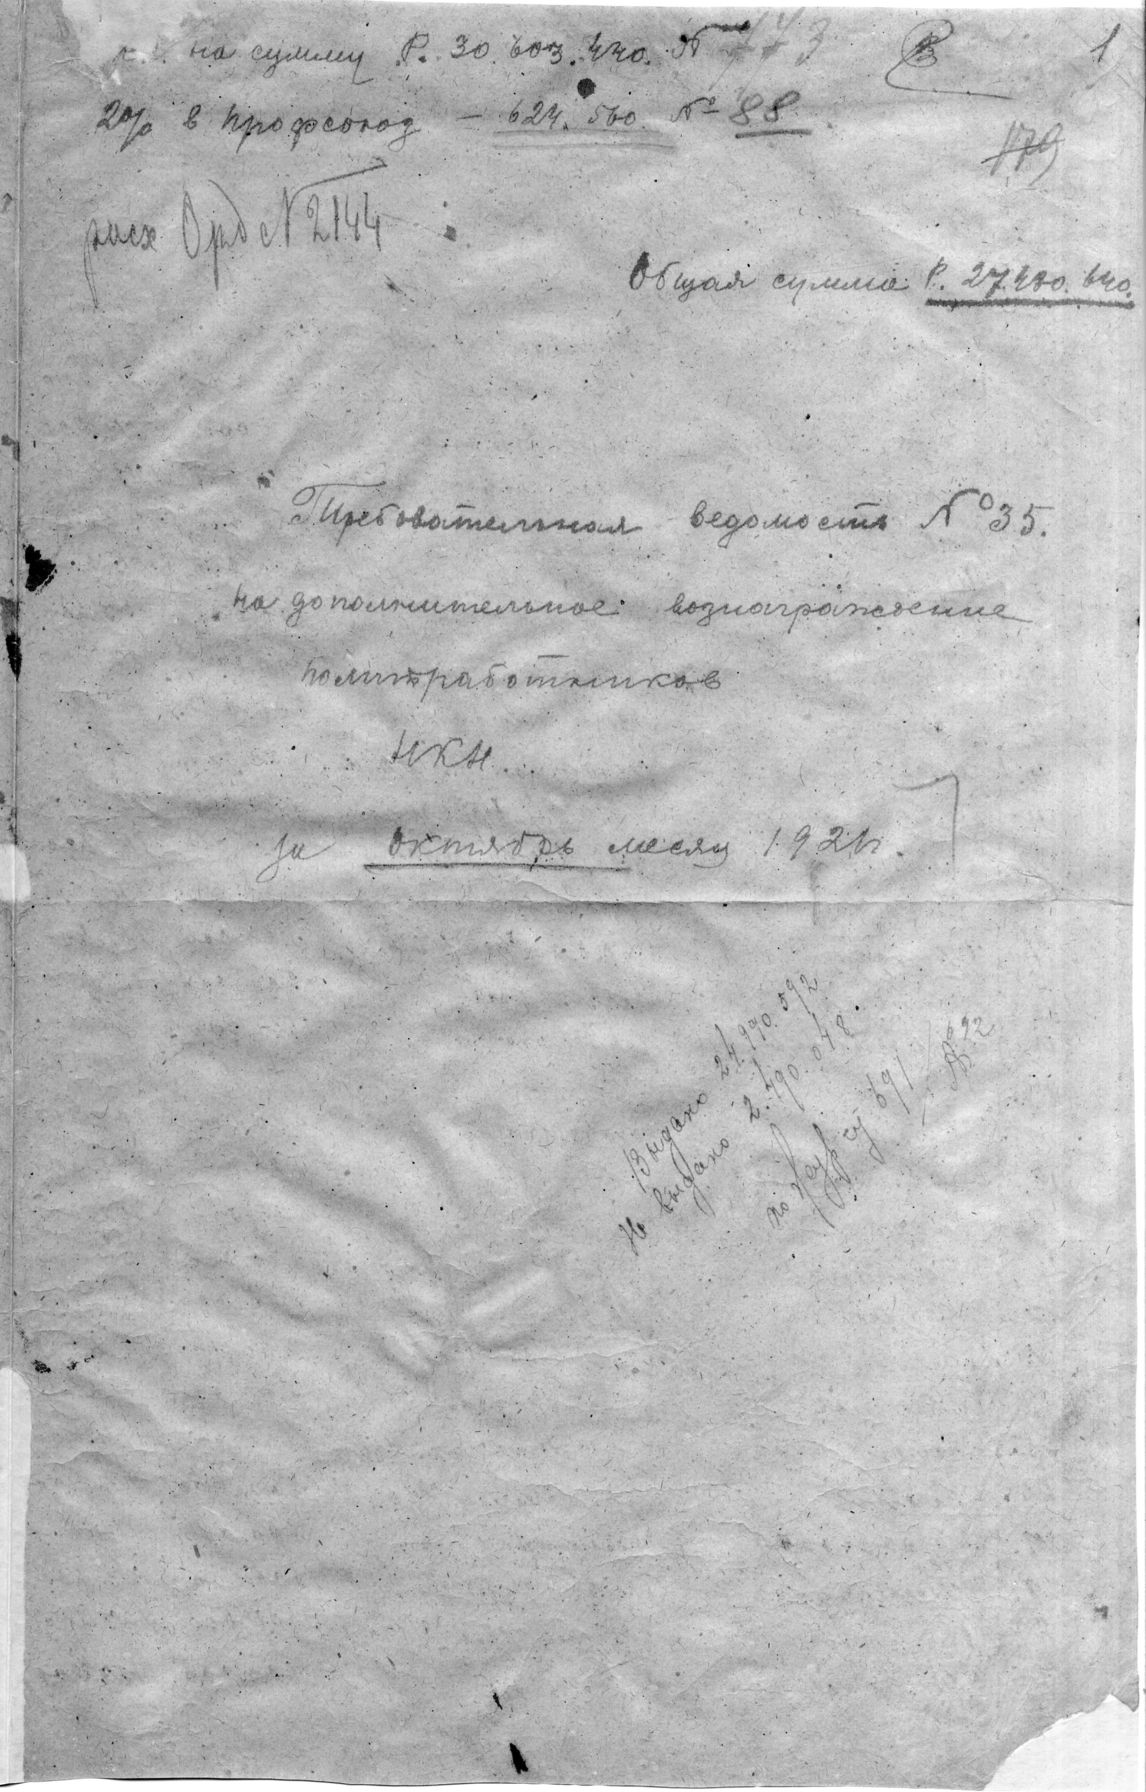 на сумму Р. 30.603.440. № 773
В
1
2% в профсоюз — 624.560. № 88
179
расх Орд № 2144
Общая сумма Р. 27.480.640.
Требовательная ведомость № 35.
на дополнительное вознаграждение
политработников
НКН
за октябрь месяц 192 г.
Выдано 24.990.592
Не выдано 2.490.048.
по 691
№ 92